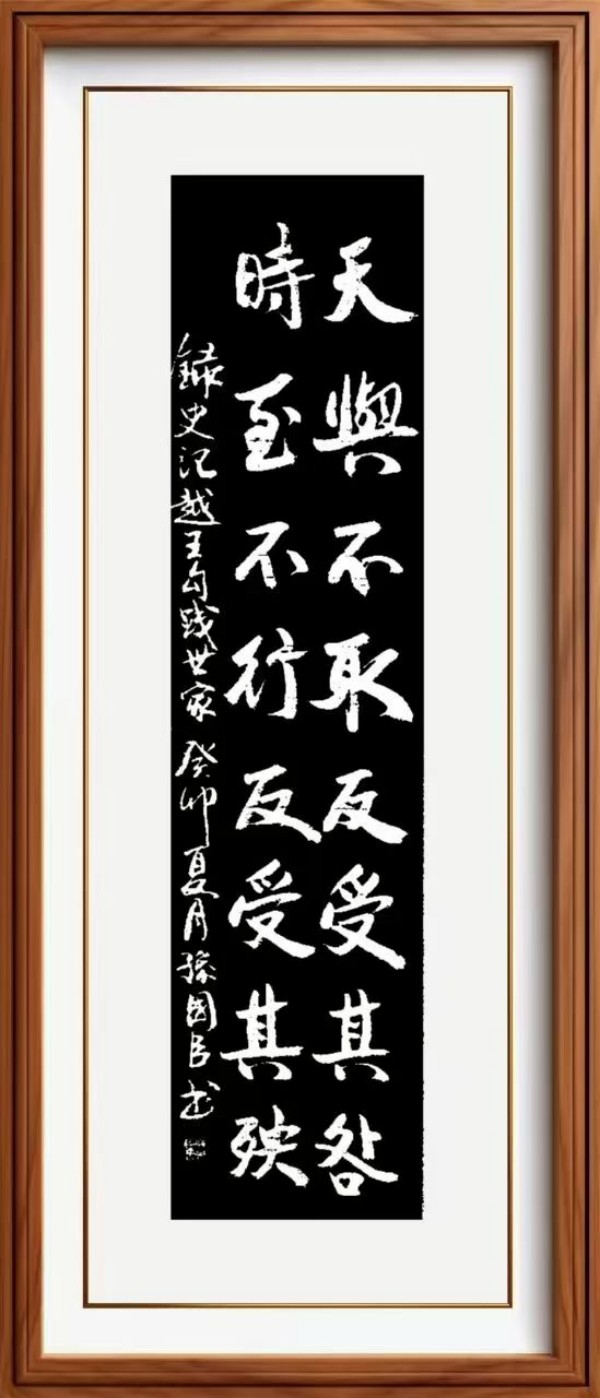 天與不取反受其咎
時至不行反受其殃
録史记越王勾践世家 癸卯夏月孫國臣书